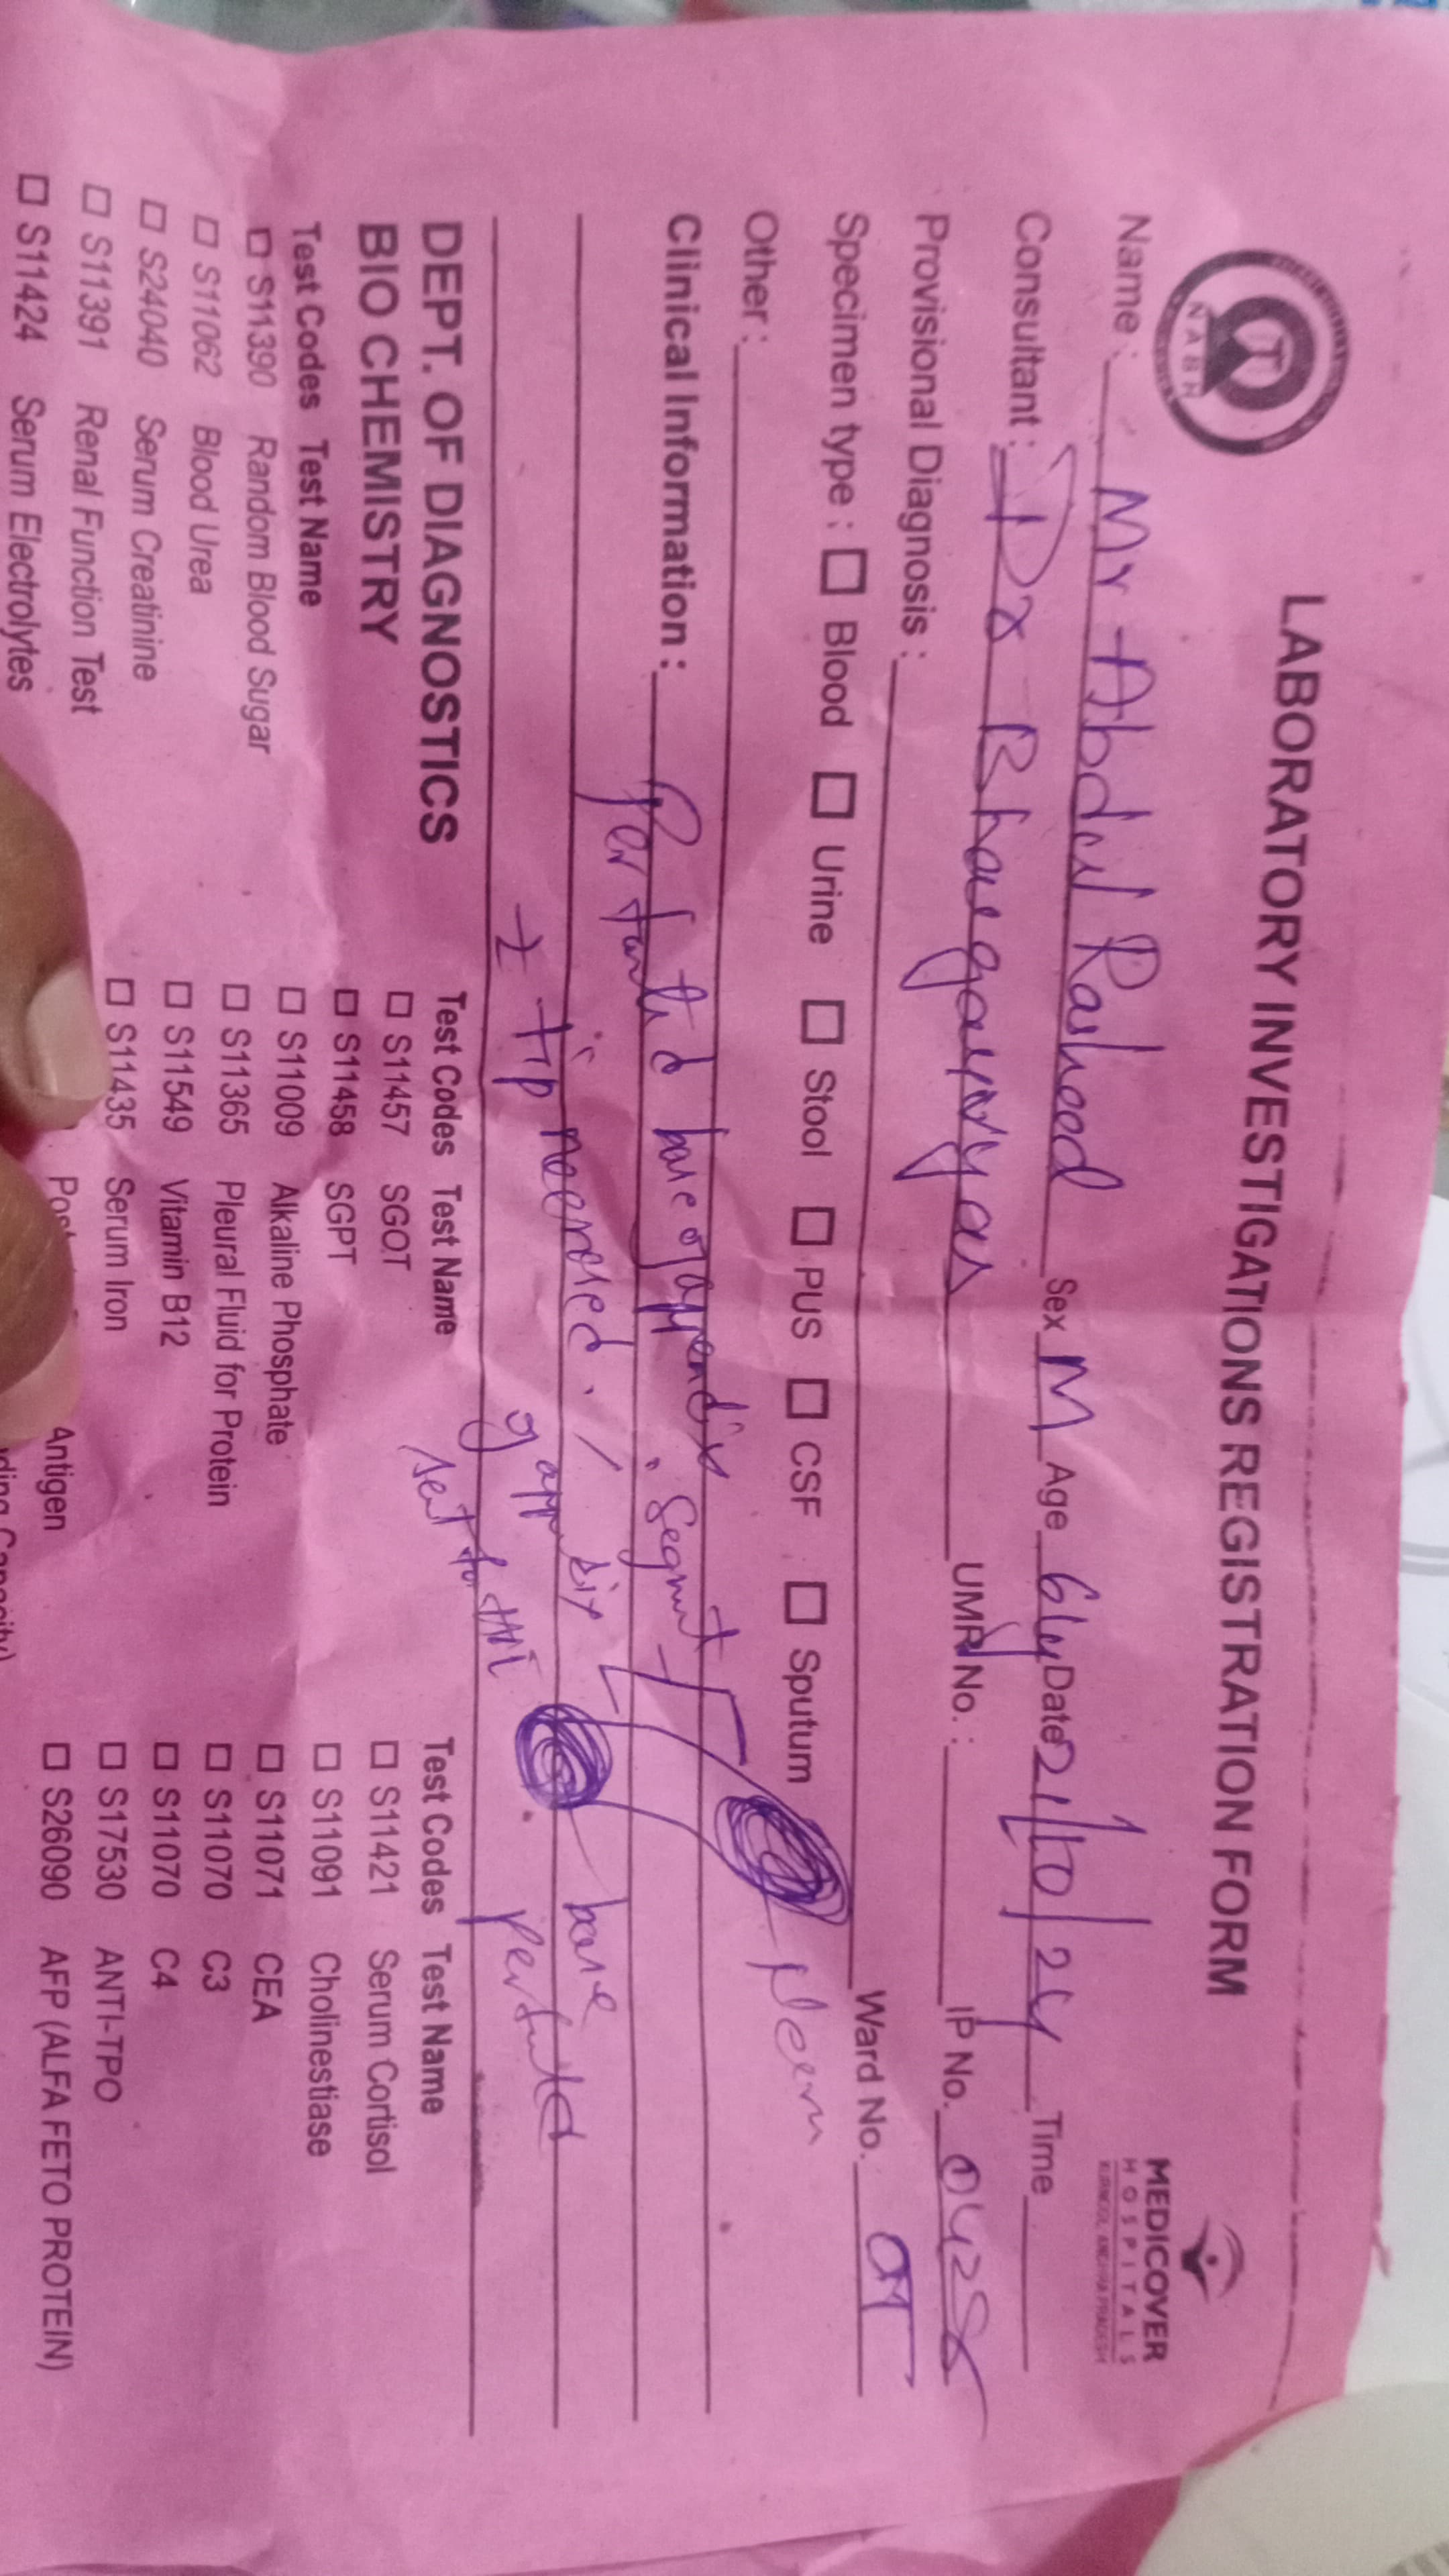 LABORATORY INVESTIGATIONS REGISTRATION FORM
NABH
MEDICOVER
HOSPITALS
KURNOOL, ANDHRA PRADESH
Name : Mr Abdul Rasheed Sex M Age 61y Date 21/10/24 Time
Consultant : Dr Bhavya UMR No. : IP No.
Provisional Diagnosis :
Specimen type : □ Blood □ Urine □ Stool □ PUS □ CSF □ Sputum Ward No. OT
Other :
Clinical Information : Perforated base of appendix. Segment
tip necrosed. of appendix
sent for
base
ileum
DEPT. OF DIAGNOSTICS
BIO CHEMISTRY
Test Codes Test Name Test Codes Test Name Test Codes Test Name
□ S11390 Random Blood Sugar □ S11457 SGOT □ S11421 Serum Cortisol
□ S11062 Blood Urea □ S11458 SGPT □ S11091 Cholinestiase
□ S24040 Serum Creatinine □ S11009 Alkaline Phosphate □ S11071 CEA
□ S11391 Renal Function Test □ S11365 Pleural Fluid for Protein □ S11070 C3
□ S11424 Serum Electrolytes □ S11549 Vitamin B12 □ S11070 C4
□ S11435 Serum Iron □ S17530 ANTI-TPO
Antigen □ S26090 AFP (ALFA FETO PROTEIN)